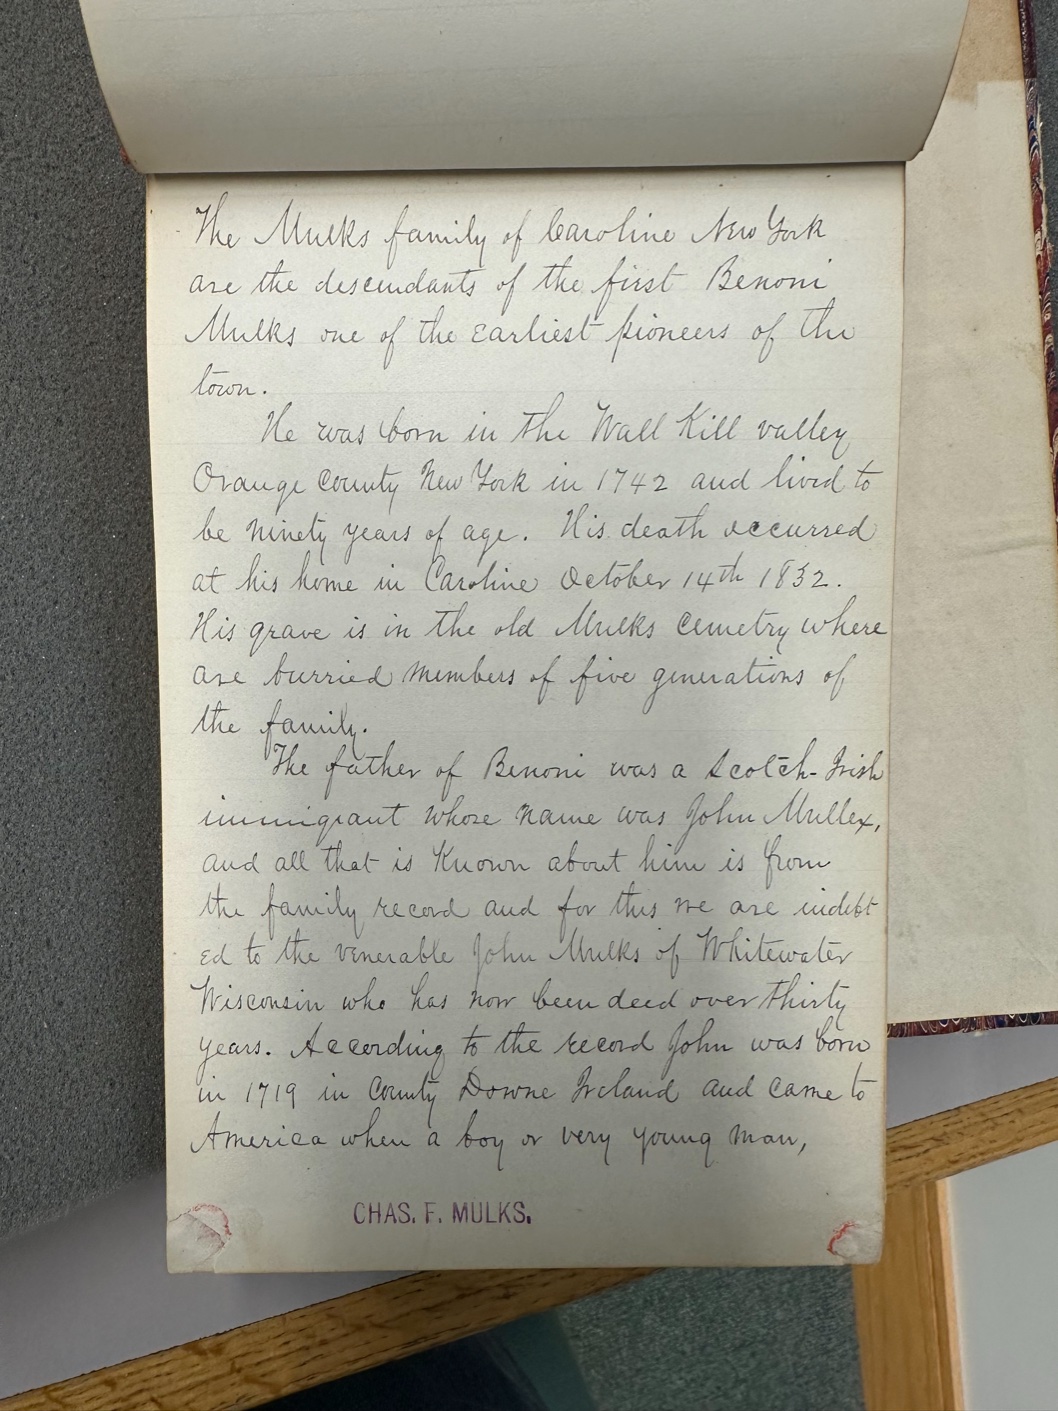 The Mulks family of Caroline New York
are the descendants of the first Benoni
Mulks one of the earliest pioneers of the
town.
He was born in the Wall Kill valley
Orange County New York in 1742 and lived to
be ninety years of age. His death occurred
at his home in Caroline October 14th 1832.
His grave is in the old Mulks cemetry where
are burried members of five generations of
the family.
The father of Benoni was a Scotch-Irish
immigrant whose name was John Mullex,
and all that is Known about him is from
the family record and for this we are indebt
ed to the venerable John Mulks of Whitewater
Wisconsin who has now been deed over thirty
years. According to the record John was born
in 1719 in County Downe Ireland and came to
America when a boy or very young man,
CHAS. F. MULKS.